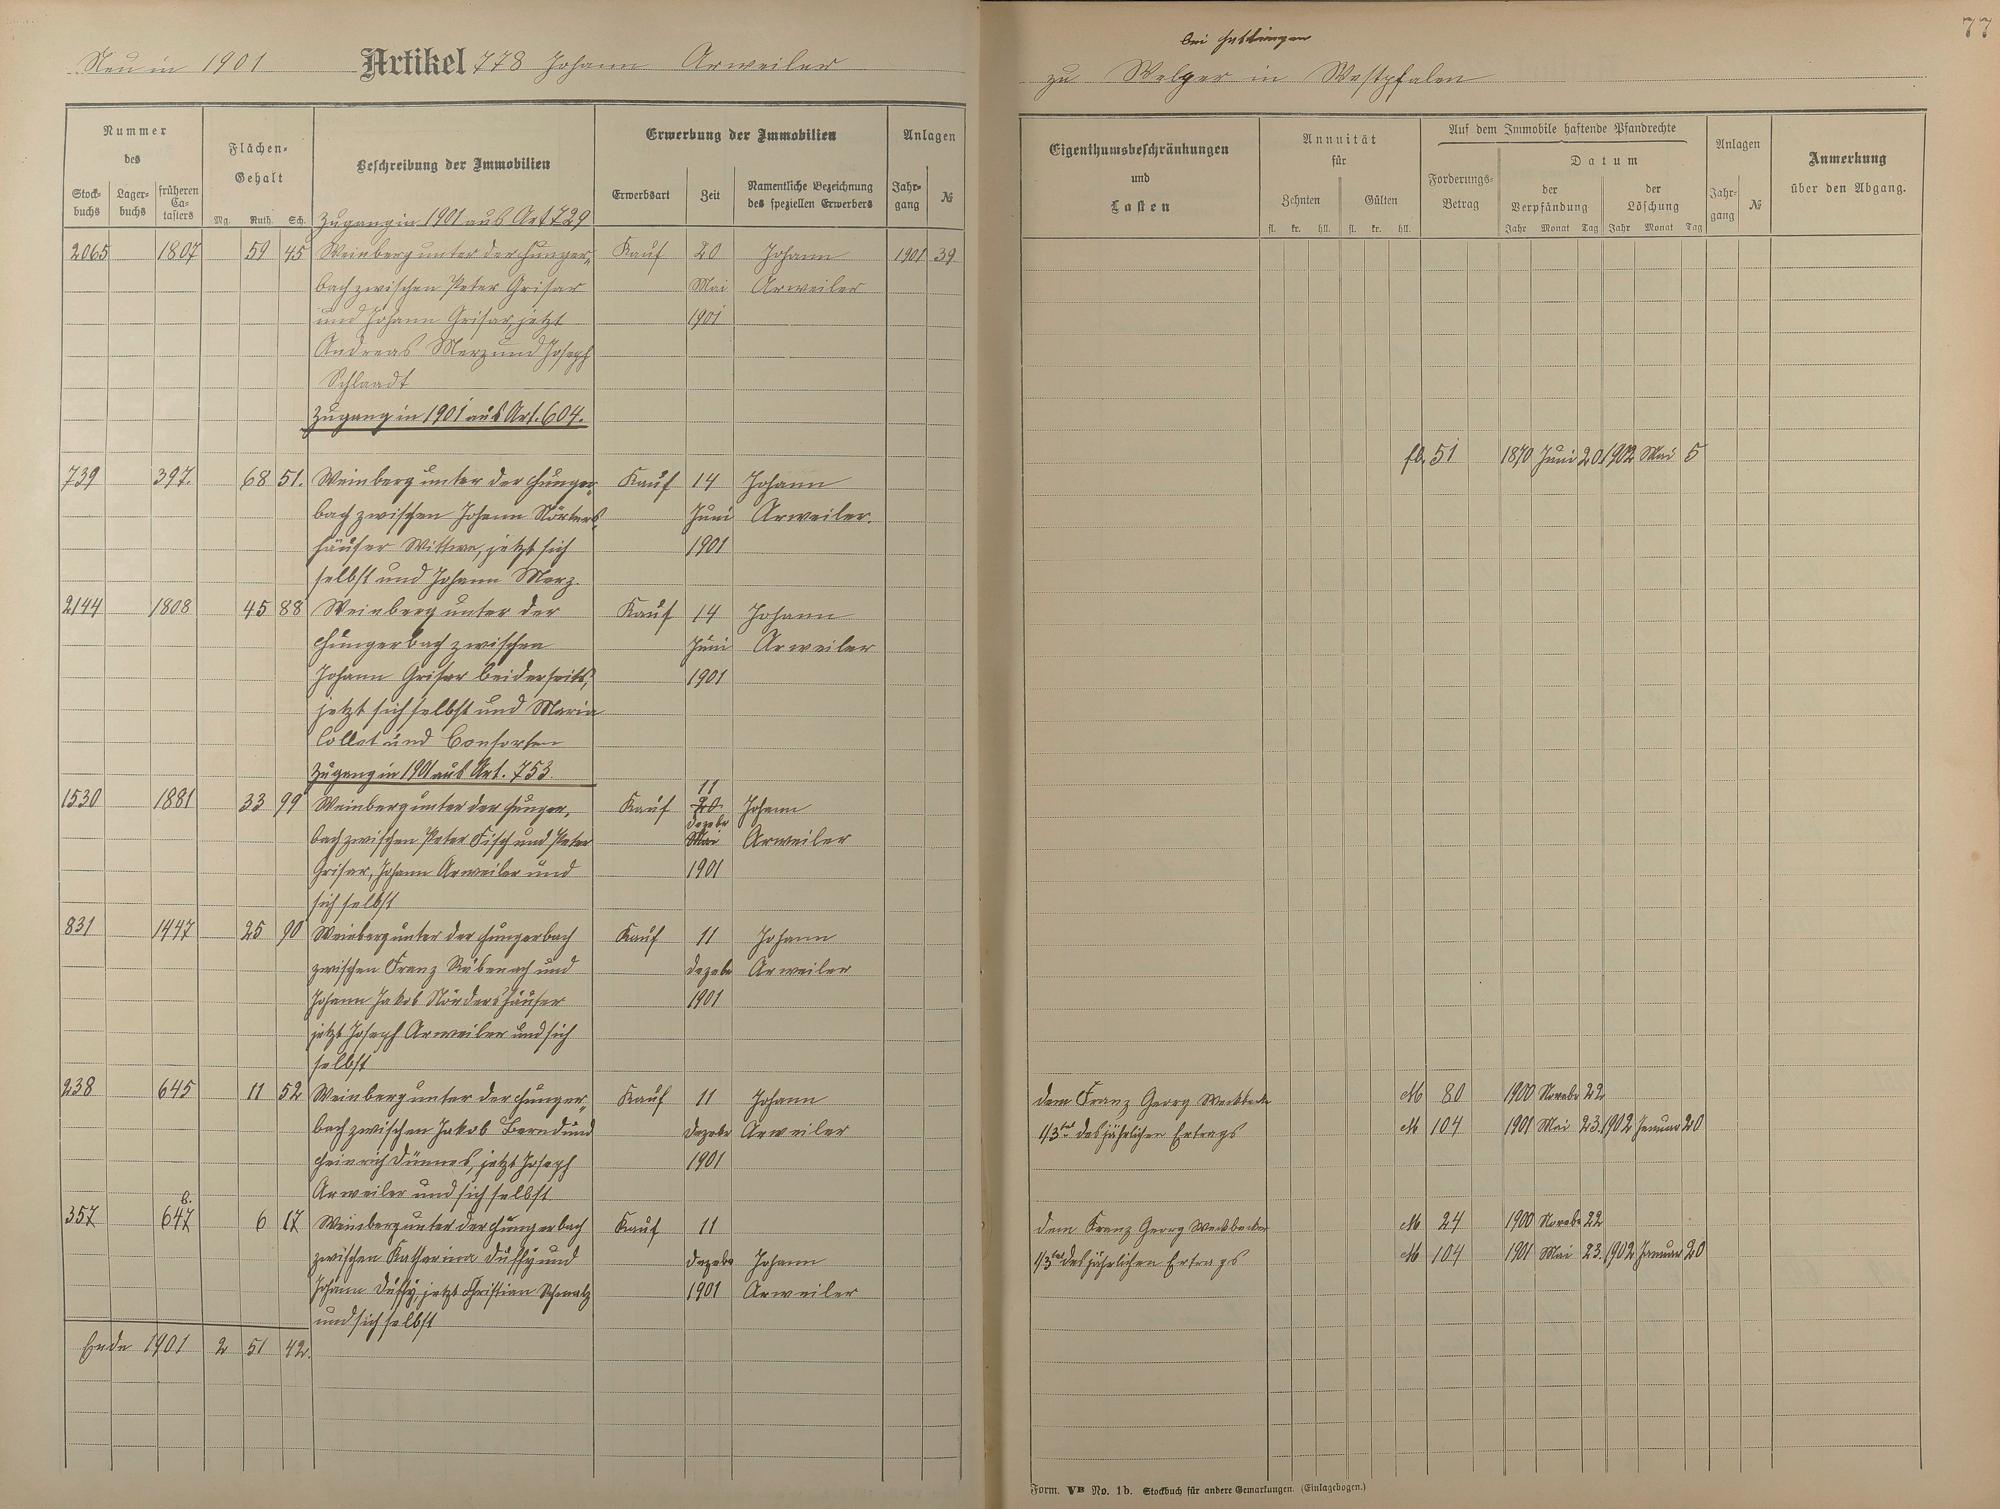 77
Neu in 1901 Artikel 778 Johann Arweiler
zu Welper in Westpfalen
Nummer
des
Stock-
buchs
Lager-
buchs
früheren
Ca-
tasters
Flächen-
Gehalt
Mg. Ruth. Sch.
Beschreibung der Immobilien
Erwerbung der Immobilien
Erwerbsart
Zeit
Namentliche Bezeichnung
des speziellen Erwerbers
Anlagen
Jahr-
gang
№
Zugang in 1901 aus Art 729
2065 1807 59 45 Weinberg unter der Hunger- Kauf 20 Johann 1901 39
bach zwischen Peter Grisar Mai Arweiler
und Johann Grisar, jetzt 1901
Andreas Merz und Joseph
Schlaadt
Zugang in 1901 aus Art. 604.
739 397. 68 51. Weinberg unter der Hunger- Kauf 14 Johann
bach zwischen Johann Nörters- Juni Arweiler.
häuser Wittwe, jetzt sich 1901
selbst und Johann Merz.
2144 1808 45 88 Weinberg unter der Kauf 14 Johann
Hungerbach zwischen Juni Arweiler
Johann Grisar beiderseits, 1901
jetzt sich selbst und Maria
Collet und Consorten
Zugang in 1901 aus Art. 753.
11
1530 1881 33 99 Weinberg unter der Hunger- Kauf 20 Johann
Dezebr
bach zwischen Peter Fisch und Peter Mai Arweiler
Grisar, Johann Arweiler und 1901
sich selbst
831 1447 25 90 Weinberg unter der Hungerbach Kauf 11 Johann
zwischen Franz Rübenach und Dezebr Arweiler
Johann Jakob Nördershäuser 1901
jetzt Joseph Arweiler und sich
selbst
238 645 11 52 Weinberg unter der Hunger- Kauf 11 Johann
bach zwischen Jakob Bernd und Dezebr Arweiler
Heinrich Dünnes, jetzt Joseph 1901
Arweiler und sich selbst
b.
357 647 6 17 Weinberg unter der Hungerbach Kauf 11
zwischen Katharina Duffy und Dezebr Johann
Johann Duffy, jetzt Christian Schmalz 1901 Arweiler
und sich selbst
Ende 1901 2 51 42.
Eigenthumsbeschränkungen
und
Lasten
Annuität
für
Zehnten
Gülten
fl. kr. hll. fl. kr. hll.
Auf dem Immobile haftende Pfandrechte
Forderungs-
Betrag
Datum
der
Verpfändung
der
Löschung
Jahr Monat Tag Jahr Monat Tag
Anlagen
Jahr-
gang
№
Anmerkung
über den Abgang.
fl. 51 1870 Juni 20 1902 Mai 5
dem Franz Georg Weckbecker M 80 1900 Novebr 22
1/3tel des jährlichen Ertrags M 104 1901 Mai 23. 1902 Januar 20
dem Franz Georg Weckbecker M 24 1900 Novebr 22
1/3tel des jährlichen Ertrags M 104 1901 Mai 23. 1902 Januar 20
Form. VB No. 1b. Stockbuch für andere Gemarkungen. (Einlagebogen.)